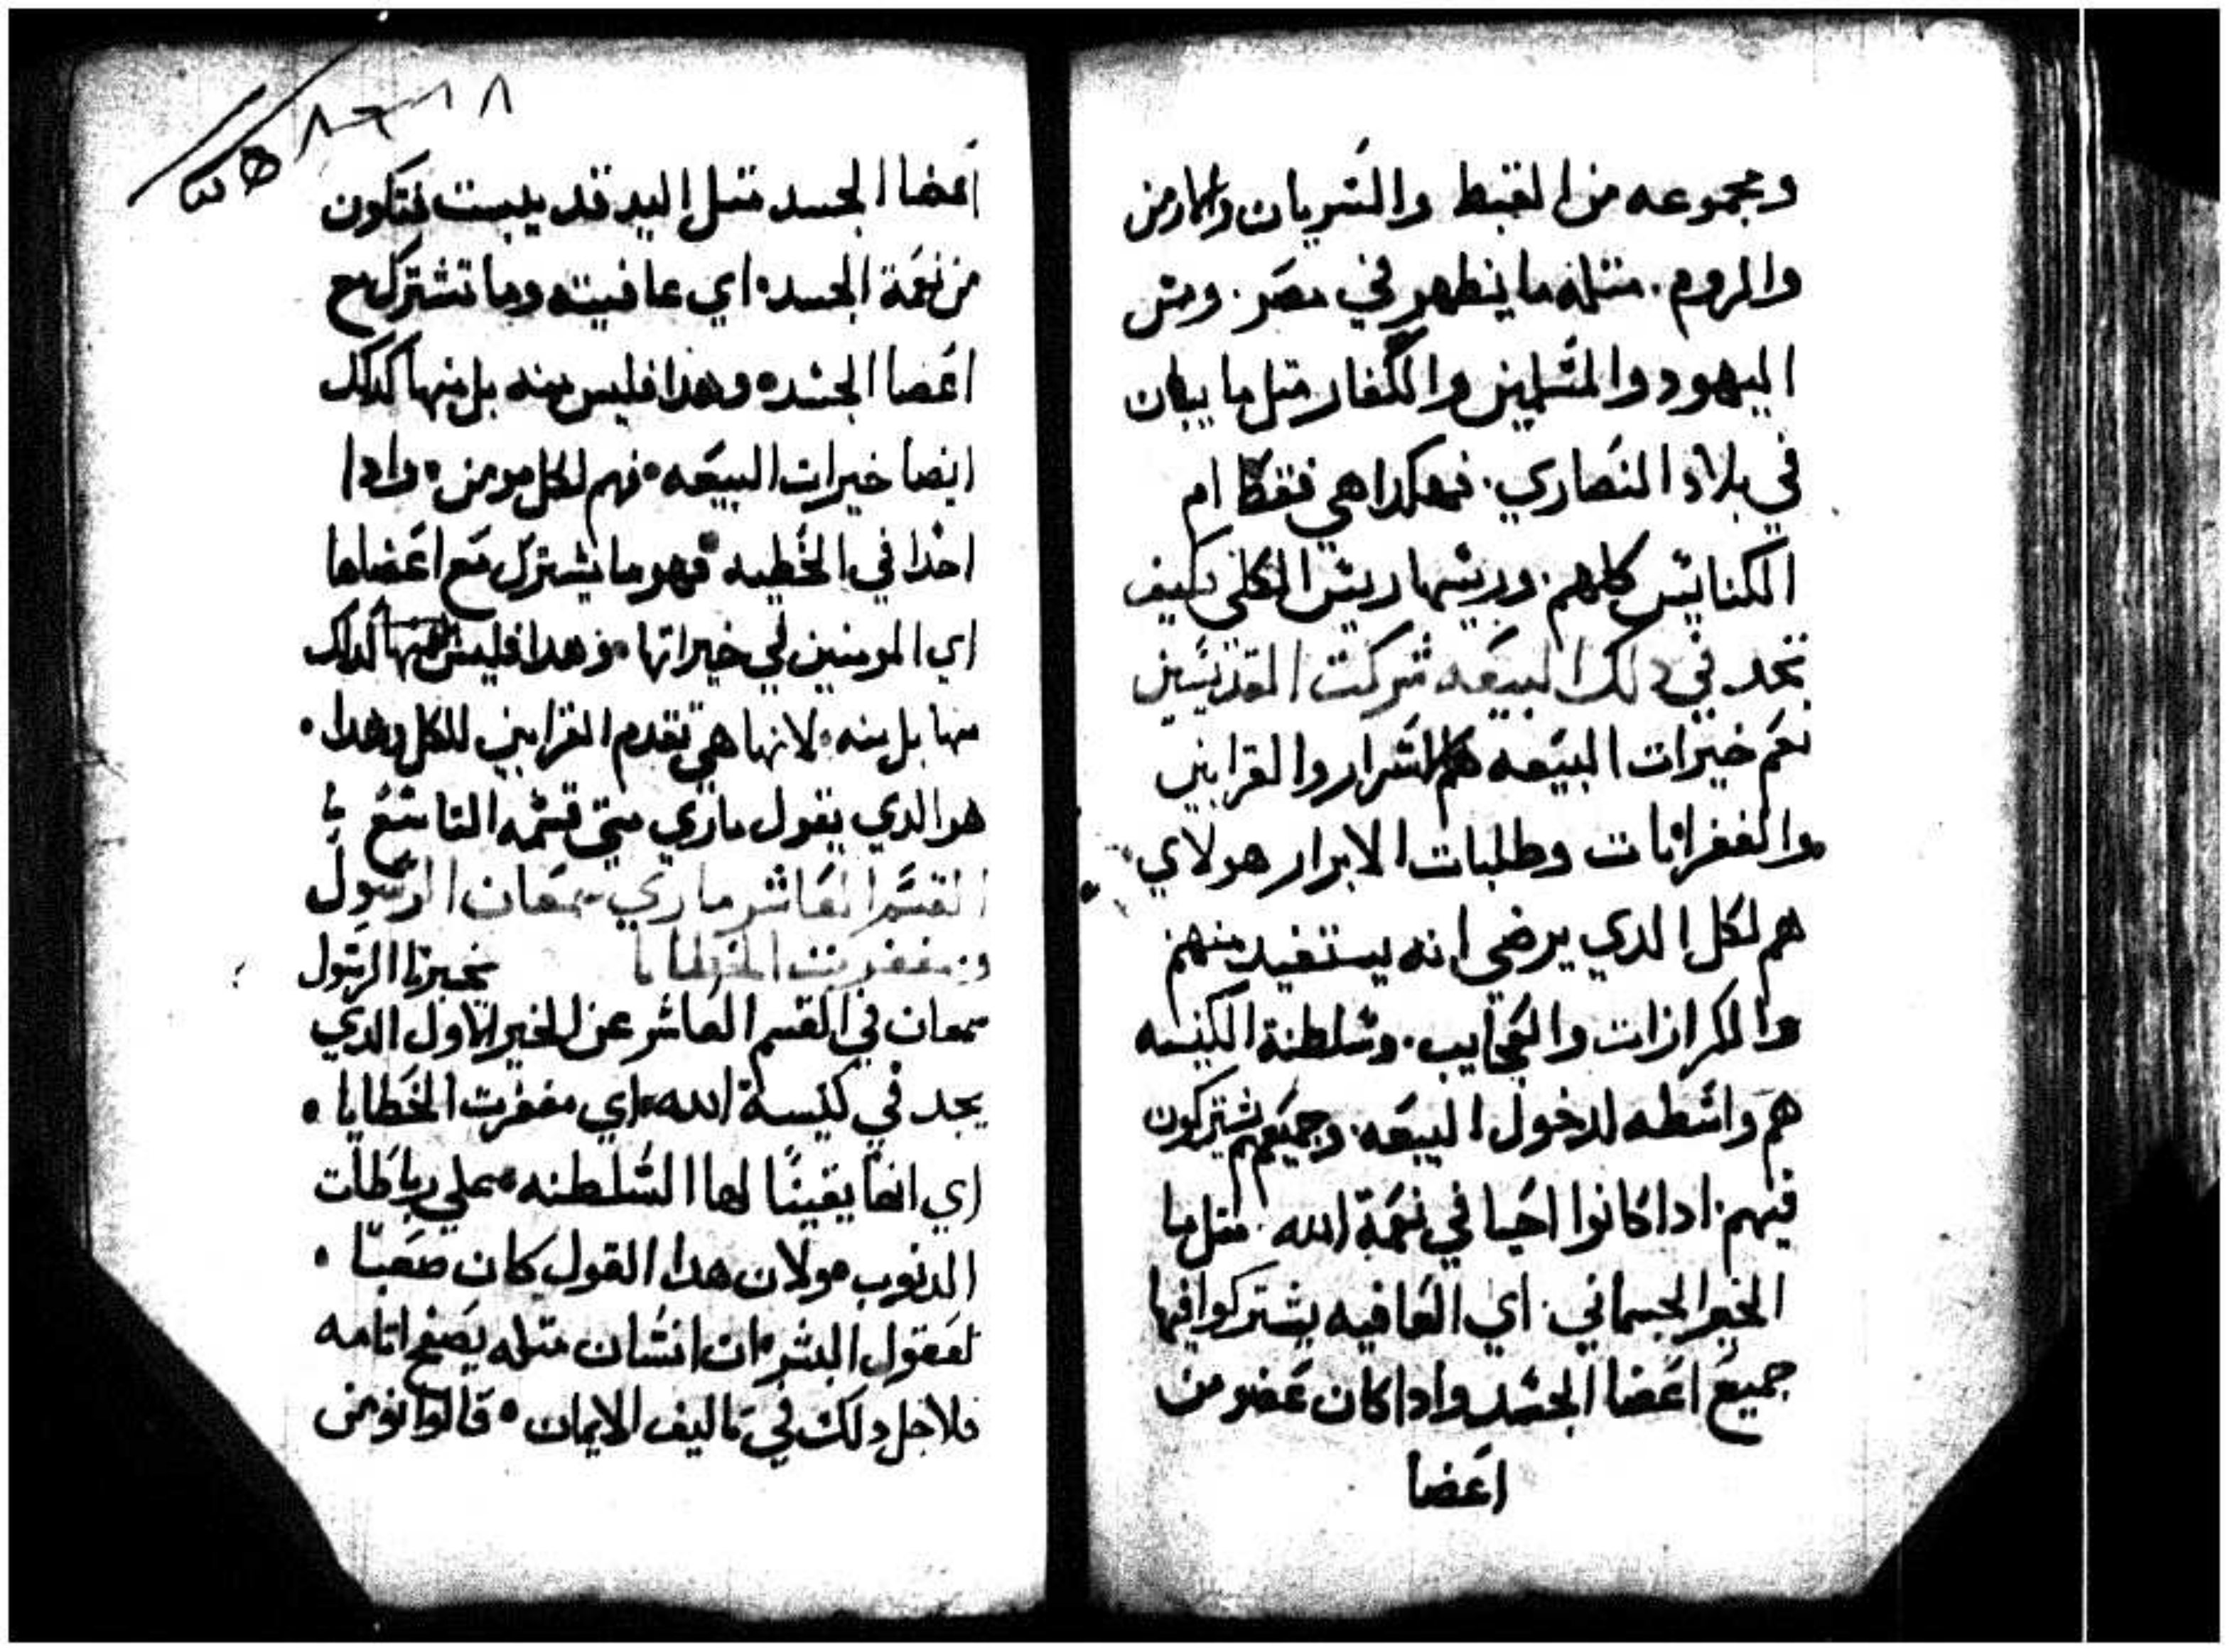 ومجموعه من القبط والسريان والارمن
والروم. متلما يظهر في مصر. ومن
اليهود والمسلمين والكفار متل ما يبان
في بلاد النصاري. فهكدا هي فقط ام
الكنايس كلهم. وريسها ريس الكل كيف
تجد في دلك البيعه شركت القديسين
نعم خيرات البيعه هم الاسرار والقرابين
والغفرانات وطلبات الابرار هولاي
هم لكل الدي يرضي انه يستفيد منهم
والكرازات والعجايب. وسلطنة الكنيسه
هم واسطه لدخول البيعه. وجميعهم يشتركون
فيهم. ادا كانوا احيا في نعمة الله. متل ما
الخير الجسماني. اي العافيه يشتركوا فيها
جميع اعضا الجسد وادا كان عضو من
اعضا
اعضا الجسد متل اليد قد يبست فتكون
من نعمة الجسد. اي عافيته وما تشترك مع
اعضا الجسد. وهدا فليس منه بل منها كدلك
ايضا خيرات البيعه. فهم لكل مومن. وادا
احدا في الخطيه فهو ما يشترك مع اعضاها
اي المومنين في خيراتها. فهدا فليس كدلك
منها بل منه. لانها هي تقدم القرابين للكل وهدا.
هو الدي يقول ماري متي قسمه التاسع
القسم العاشر ماري سمعان الرسول
ومغفرت الخطايا يخبرنا الرسول
سمعان في القسم العاشر عن الخير الاول الدي
يجد في كنيسة الله. اي مغفرت الخطايا.
اي انها يقينا لها السلطنه علي رباطات
الدنوب. ولان هدا القول كان صعبا.
لعقول البشر. ان انسان متله يصفح اتامه
فلاجل دلك في تاليف الايمان. قالوا نومن